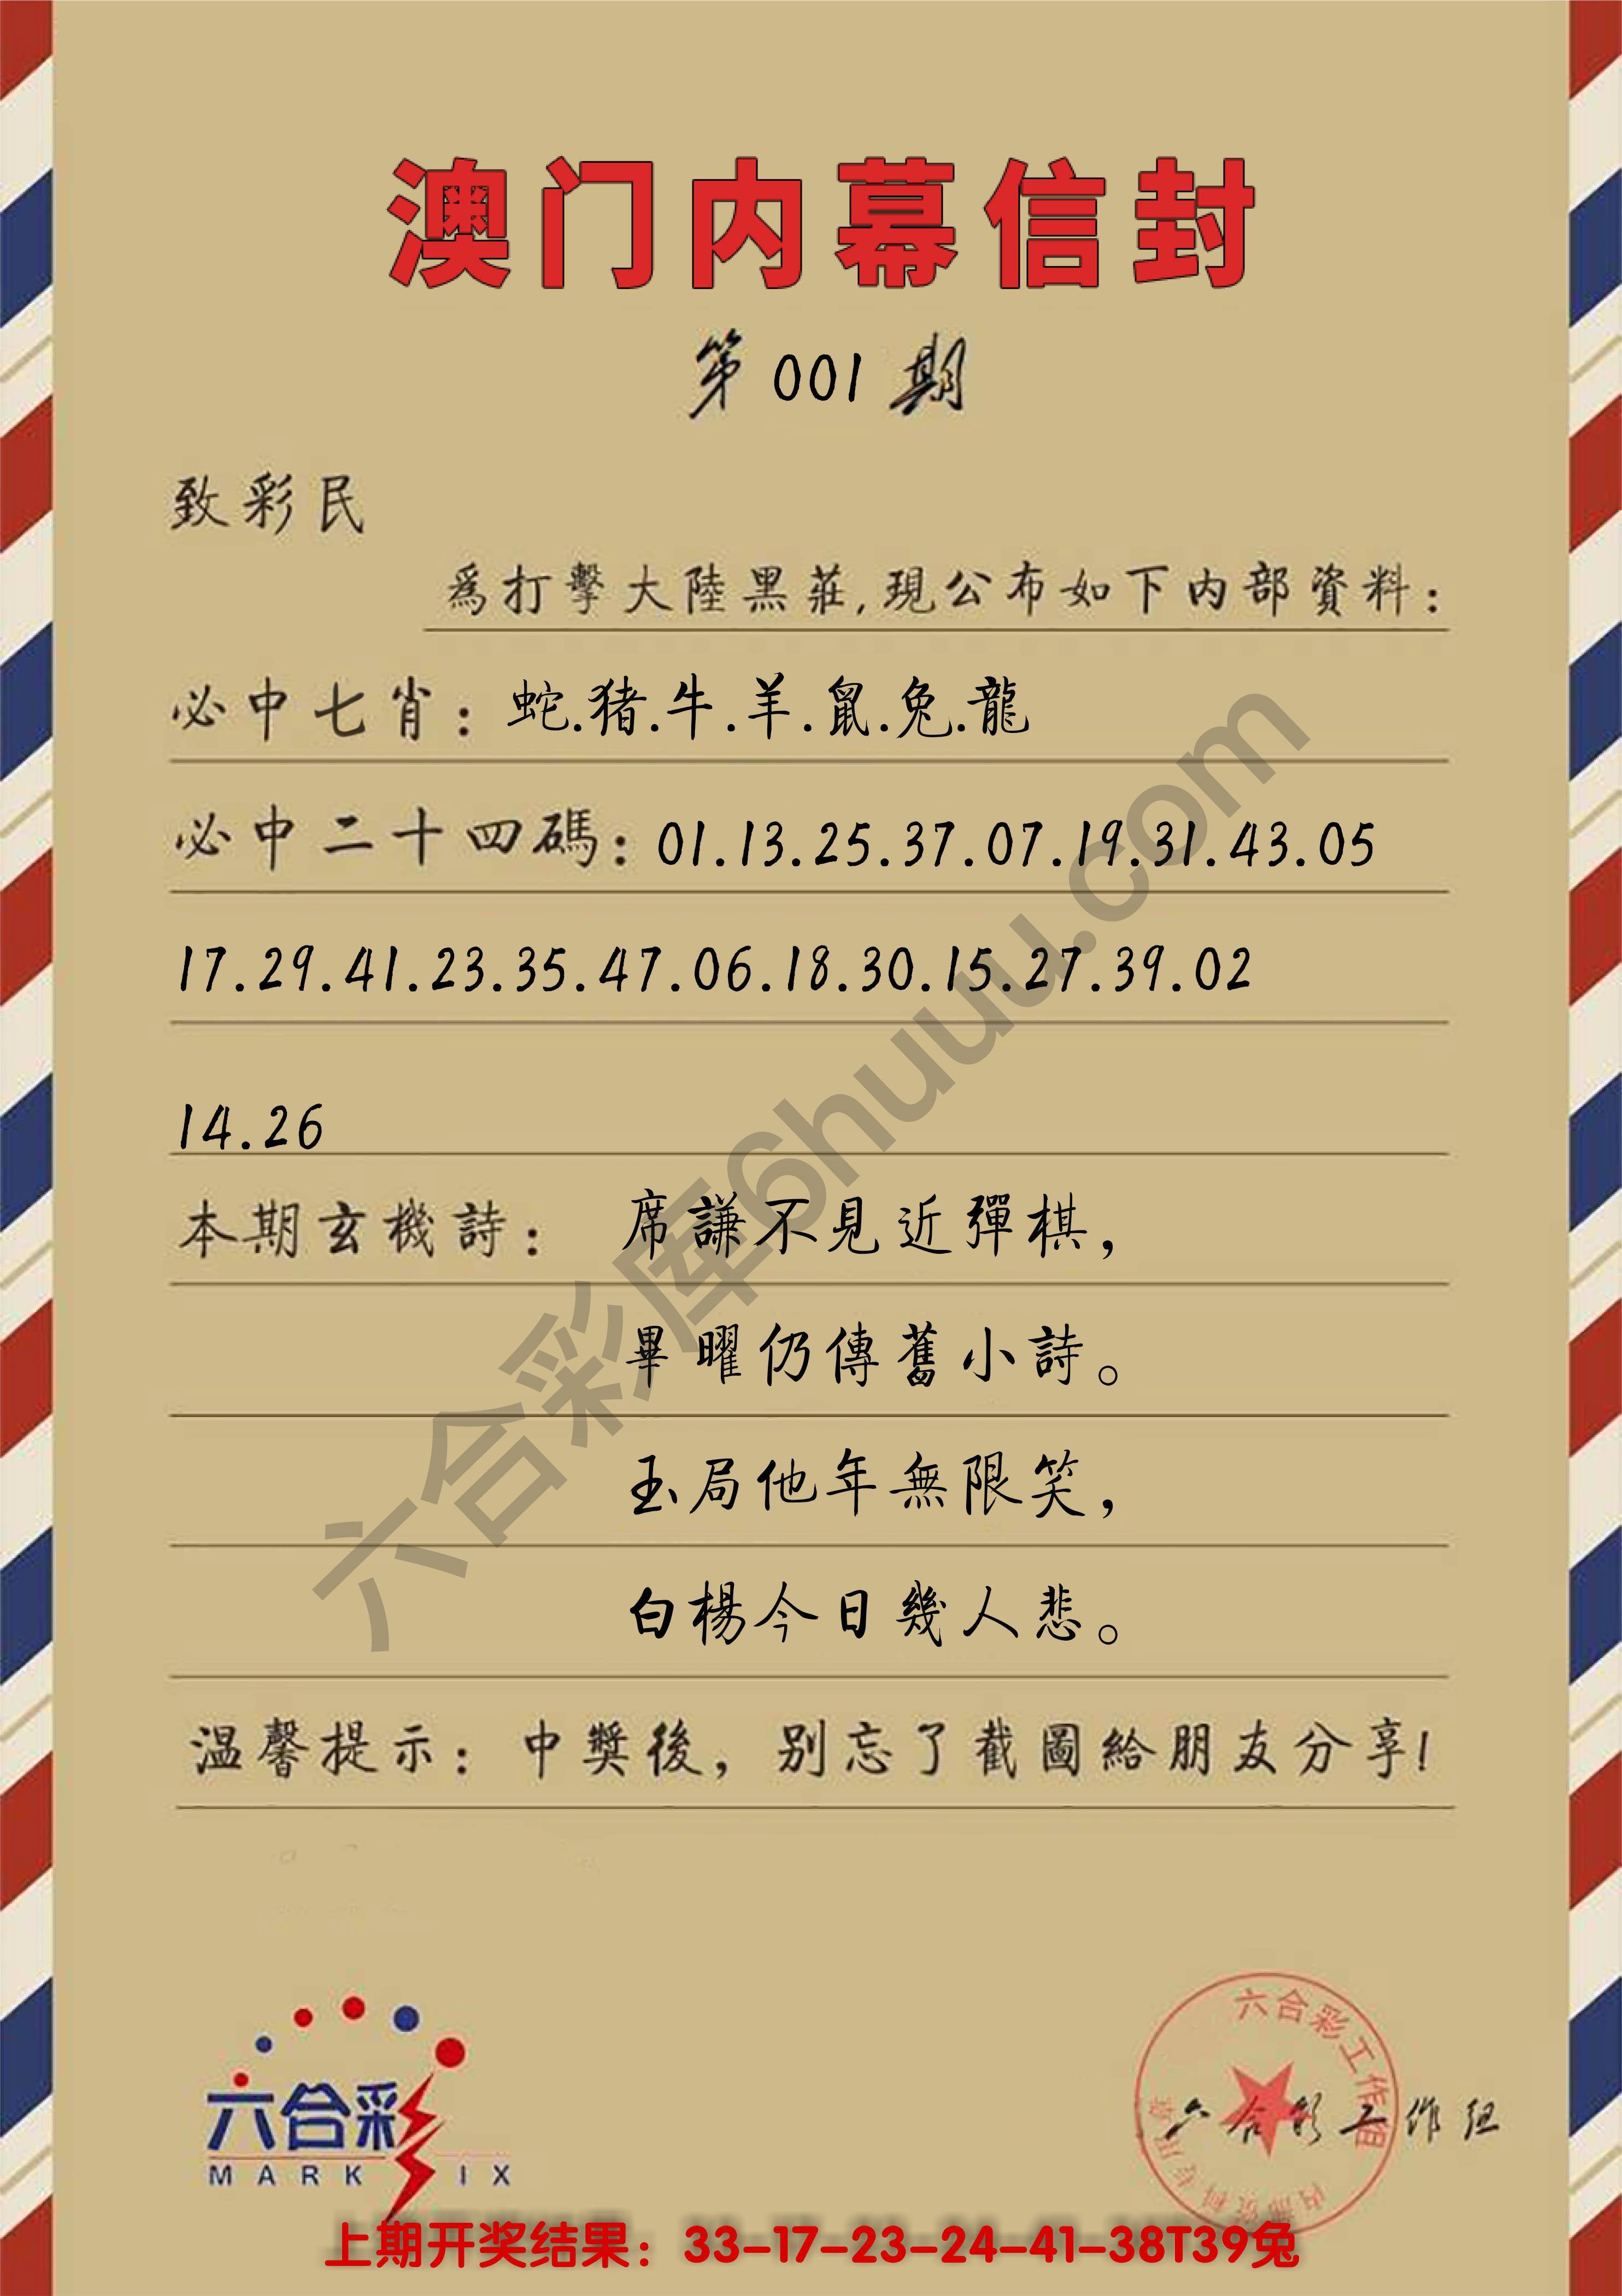 澳门内幕信封
第 001 期
致彩民
爲打擊大陸黑莊,現公布如下内部資料:
必中七肖: 蛇.猪.牛.羊.鼠.兔.龍
必中二十四碼: 01.13.25.37.07.19.31.43.05
17.29.41.23.35.47.06.18.30.15.27.39.02
14.26
本期玄機詩: 席謙不見近彈棋,
畢曜仍傳舊小詩。
玉局他年無限笑,
白楊今日幾人悲。
温馨提示: 中獎後,别忘了截圖給朋友分享!
六合彩库6huuu.com
六合彩
MARK IX
六合彩工作组
六合彩工作组
上期开奖结果: 33-17-23-24-41-38T39兔